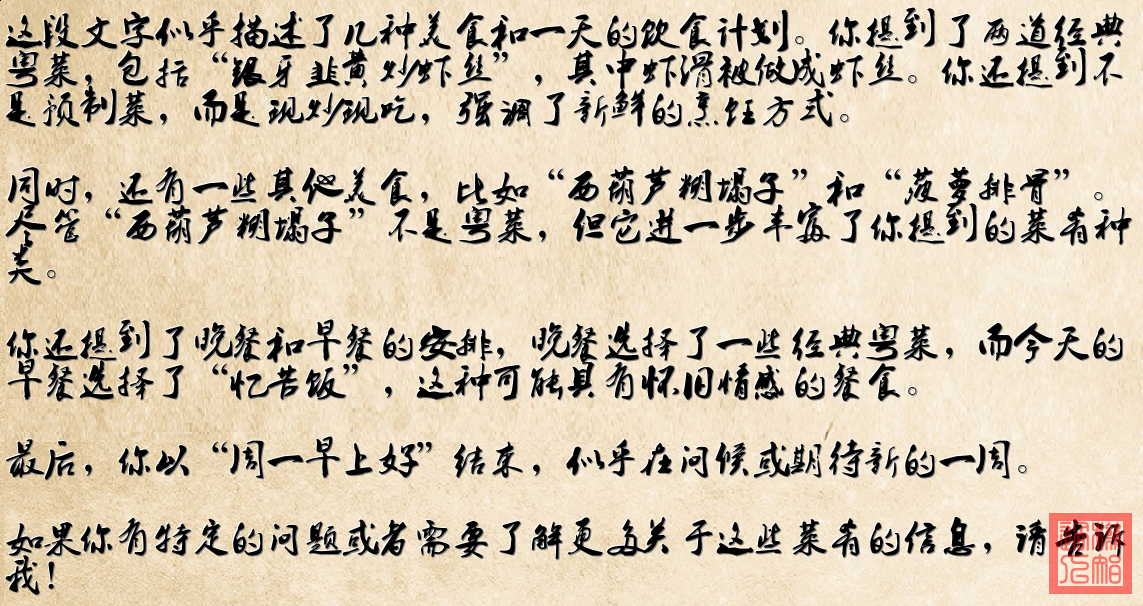 这段文字似乎描述了几种美食和一天的饮食计划。你提到了两道经典
粤菜，包括“银牙韭黄炒虾丝”，其中虾滑被做成虾丝。你还提到不
是预制菜，而是现炒现吃，强调了新鲜的烹饪方式。
同时，还有一些其他美食，比如“西葫芦糊塌子”和“菠萝排骨”。
尽管“西葫芦糊塌子”不是粤菜，但它进一步丰富了你提到的菜肴种
类。
你还提到了晚餐和早餐的安排，晚餐选择了一些经典粤菜，而今天的
早餐选择了“忆苦饭”，这种可能具有怀旧情感的餐食。
最后，你以“周一早上好”结束，似乎在问候或期待新的一周。
如果你有特定的问题或者需要了解更多关于这些菜肴的信息，请告诉
我！